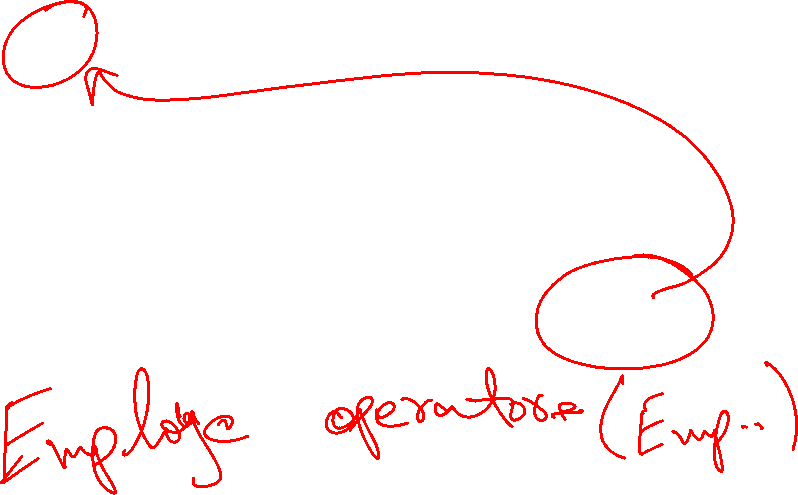 Employe operator=(Emp..)